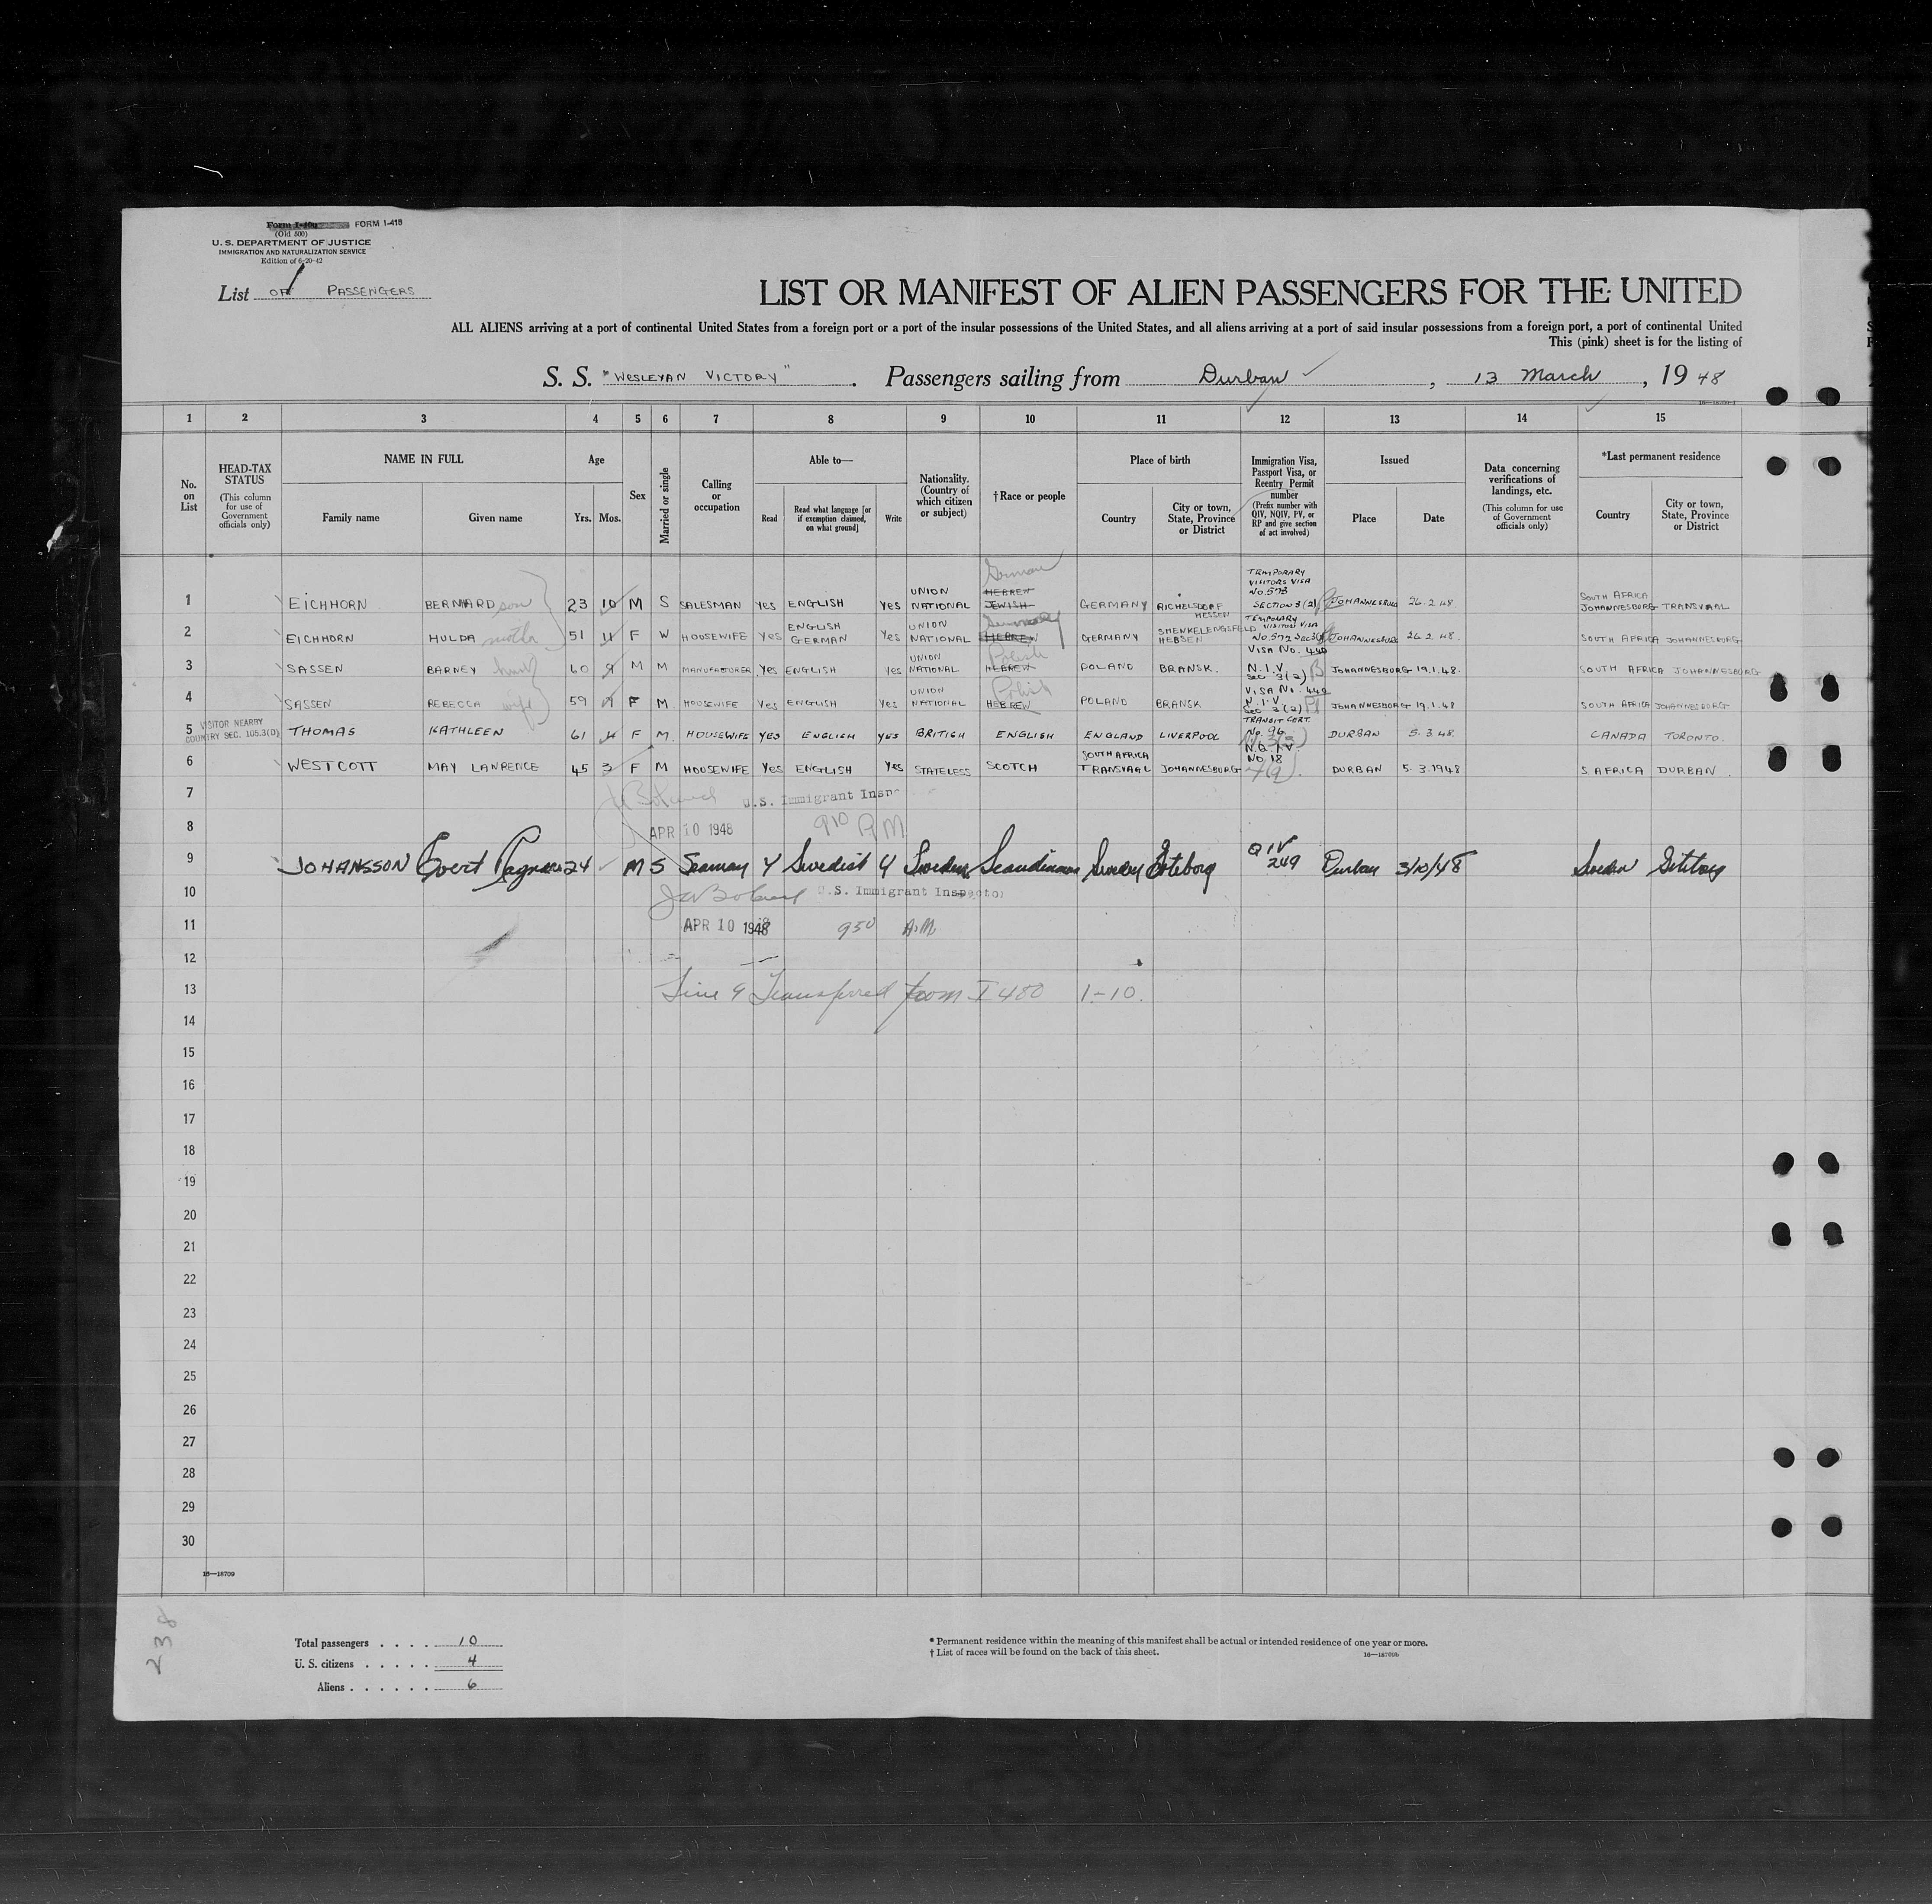 Form I-400 FORM I-418
(Old 500)
U. S. DEPARTMENT OF JUSTICE
IMMIGRATION AND NATURALIZATION SERVICE
Edition of 6-20-42
List OF PASSENGERS
LIST OR MANIFEST OF ALIEN PASSENGERS FOR THE UNITED
ALL ALIENS arriving at a port of continental United States from a foreign port or a port of the insular possessions of the United States, and all aliens arriving at a port of said insular possessions from a foreign port, a port of continental United
This (pink) sheet is for the listing of
S. S. "WESLEYAN VICTORY". Passengers sailing from Durban, 13 March, 1948
1 2 3 4 5 6 7 8 9 10 11 12 13 14 15
No. on List
HEAD-TAX STATUS (This column for use of Government officials only)
NAME IN FULL Family name Given name
Age Yrs. Mos.
Sex
Married or single
Calling or occupation
Able to— Read Read what language [or if exemption claimed, on what ground] Write
Nationality. (Country of which citizen or subject)
†Race or people
Place of birth Country City or town, State, Province or District
Immigration Visa, Passport Visa, or Reentry Permit number (Prefix number with QIV, NQIV, PV, or RP and give section of act involved)
Issued Place Date
Data concerning verifications of landings, etc. (This column for use of Government officials only)
*Last permanent residence Country City or town, State, Province or District
1 EICHHORN BERNARD son 23 10 M S SALESMAN Yes ENGLISH Yes UNION NATIONAL German HEBREW JEWISH GERMANY RICHELSDORF HESSEN TEMPORARY VISITORS VISA No 573 SECTION 3 (2) JOHANNESBURG 26.2.48. SOUTH AFRICA JOHANNESBURG TRANSVAAL
2 EICHHORN HULDA mother 51 11 F W HOUSEWIFE Yes ENGLISH GERMAN Yes UNION NATIONAL HEBREW GERMANY SHENKELENGSFELD HESSEN TEMPORARY VISITORS VISA No. 572 Sec 3(2) JOHANNESBURG 26.2.48. SOUTH AFRICA JOHANNESBURG
3 SASSEN BARNEY husb 60 9 M M MANUFACTURER Yes ENGLISH Yes UNION NATIONAL Polish HEBREW POLAND BRANSK. VISA No. 440 N.I.V. Sec 3(2) JOHANNESBURG 19.1.48. SOUTH AFRICA JOHANNESBURG
4 SASSEN REBECCA wife 59 F M. HOUSEWIFE Yes ENGLISH Yes UNION NATIONAL Polish HEBREW POLAND BRANSK VISA No. N.I.V Sec 3(2) JOHANNESBURG 19.1.48 SOUTH AFRICA JOHANNESBURG
5 VISITOR NEARBY COUNTRY SEC. 105.3(D) THOMAS KATHLEEN 61 F M. HOUSEWIFE YES ENGLISH YES BRITISH ENGLISH ENGLAND LIVERPOOL TRANSIT CERT. No. 96 DURBAN 5.3.48. CANADA TORONTO.
6 WESTCOTT MAY LAWRENCE 45 3 F M HOUSEWIFE Yes ENGLISH Yes STATELESS SCOTCH SOUTH AFRICA TRANSVAAL JOHANNESBURG N.Q.I.V. No. 18 DURBAN 5.3.1948 S. AFRICA DURBAN.
7 U.S. Immigrant Insp
8 APR 10 1948 910 AM
9 JOHANSSON Evert Ragnar 24 M S Seaman Y Swedish Y Sweden Scandinavian Sweden Goteborg QIV 249 Durban 3/10/48 Sweden Goteborg
10 U.S. Immigrant Inspector
11 APR 10 1948 950 A.M.
12
13 Line 9 Transferred from I 480 1-10.
14
15
16
17
18
19
20
21
22
23
24
25
26
27
28
29
30
16—18709
238
Total passengers . . . . 10
U. S. citizens . . . . . 4
Aliens . . . . . . 6
* Permanent residence within the meaning of this manifest shall be actual or intended residence of one year or more.
† List of races will be found on the back of this sheet.